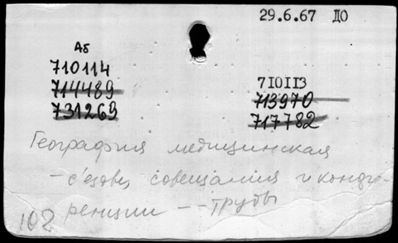 29.6.67 ДО
Аб
710114
714489
731269
710113
713970
717782
География медицинская
- съезды совещания и конфе-
ренции -- труды
102